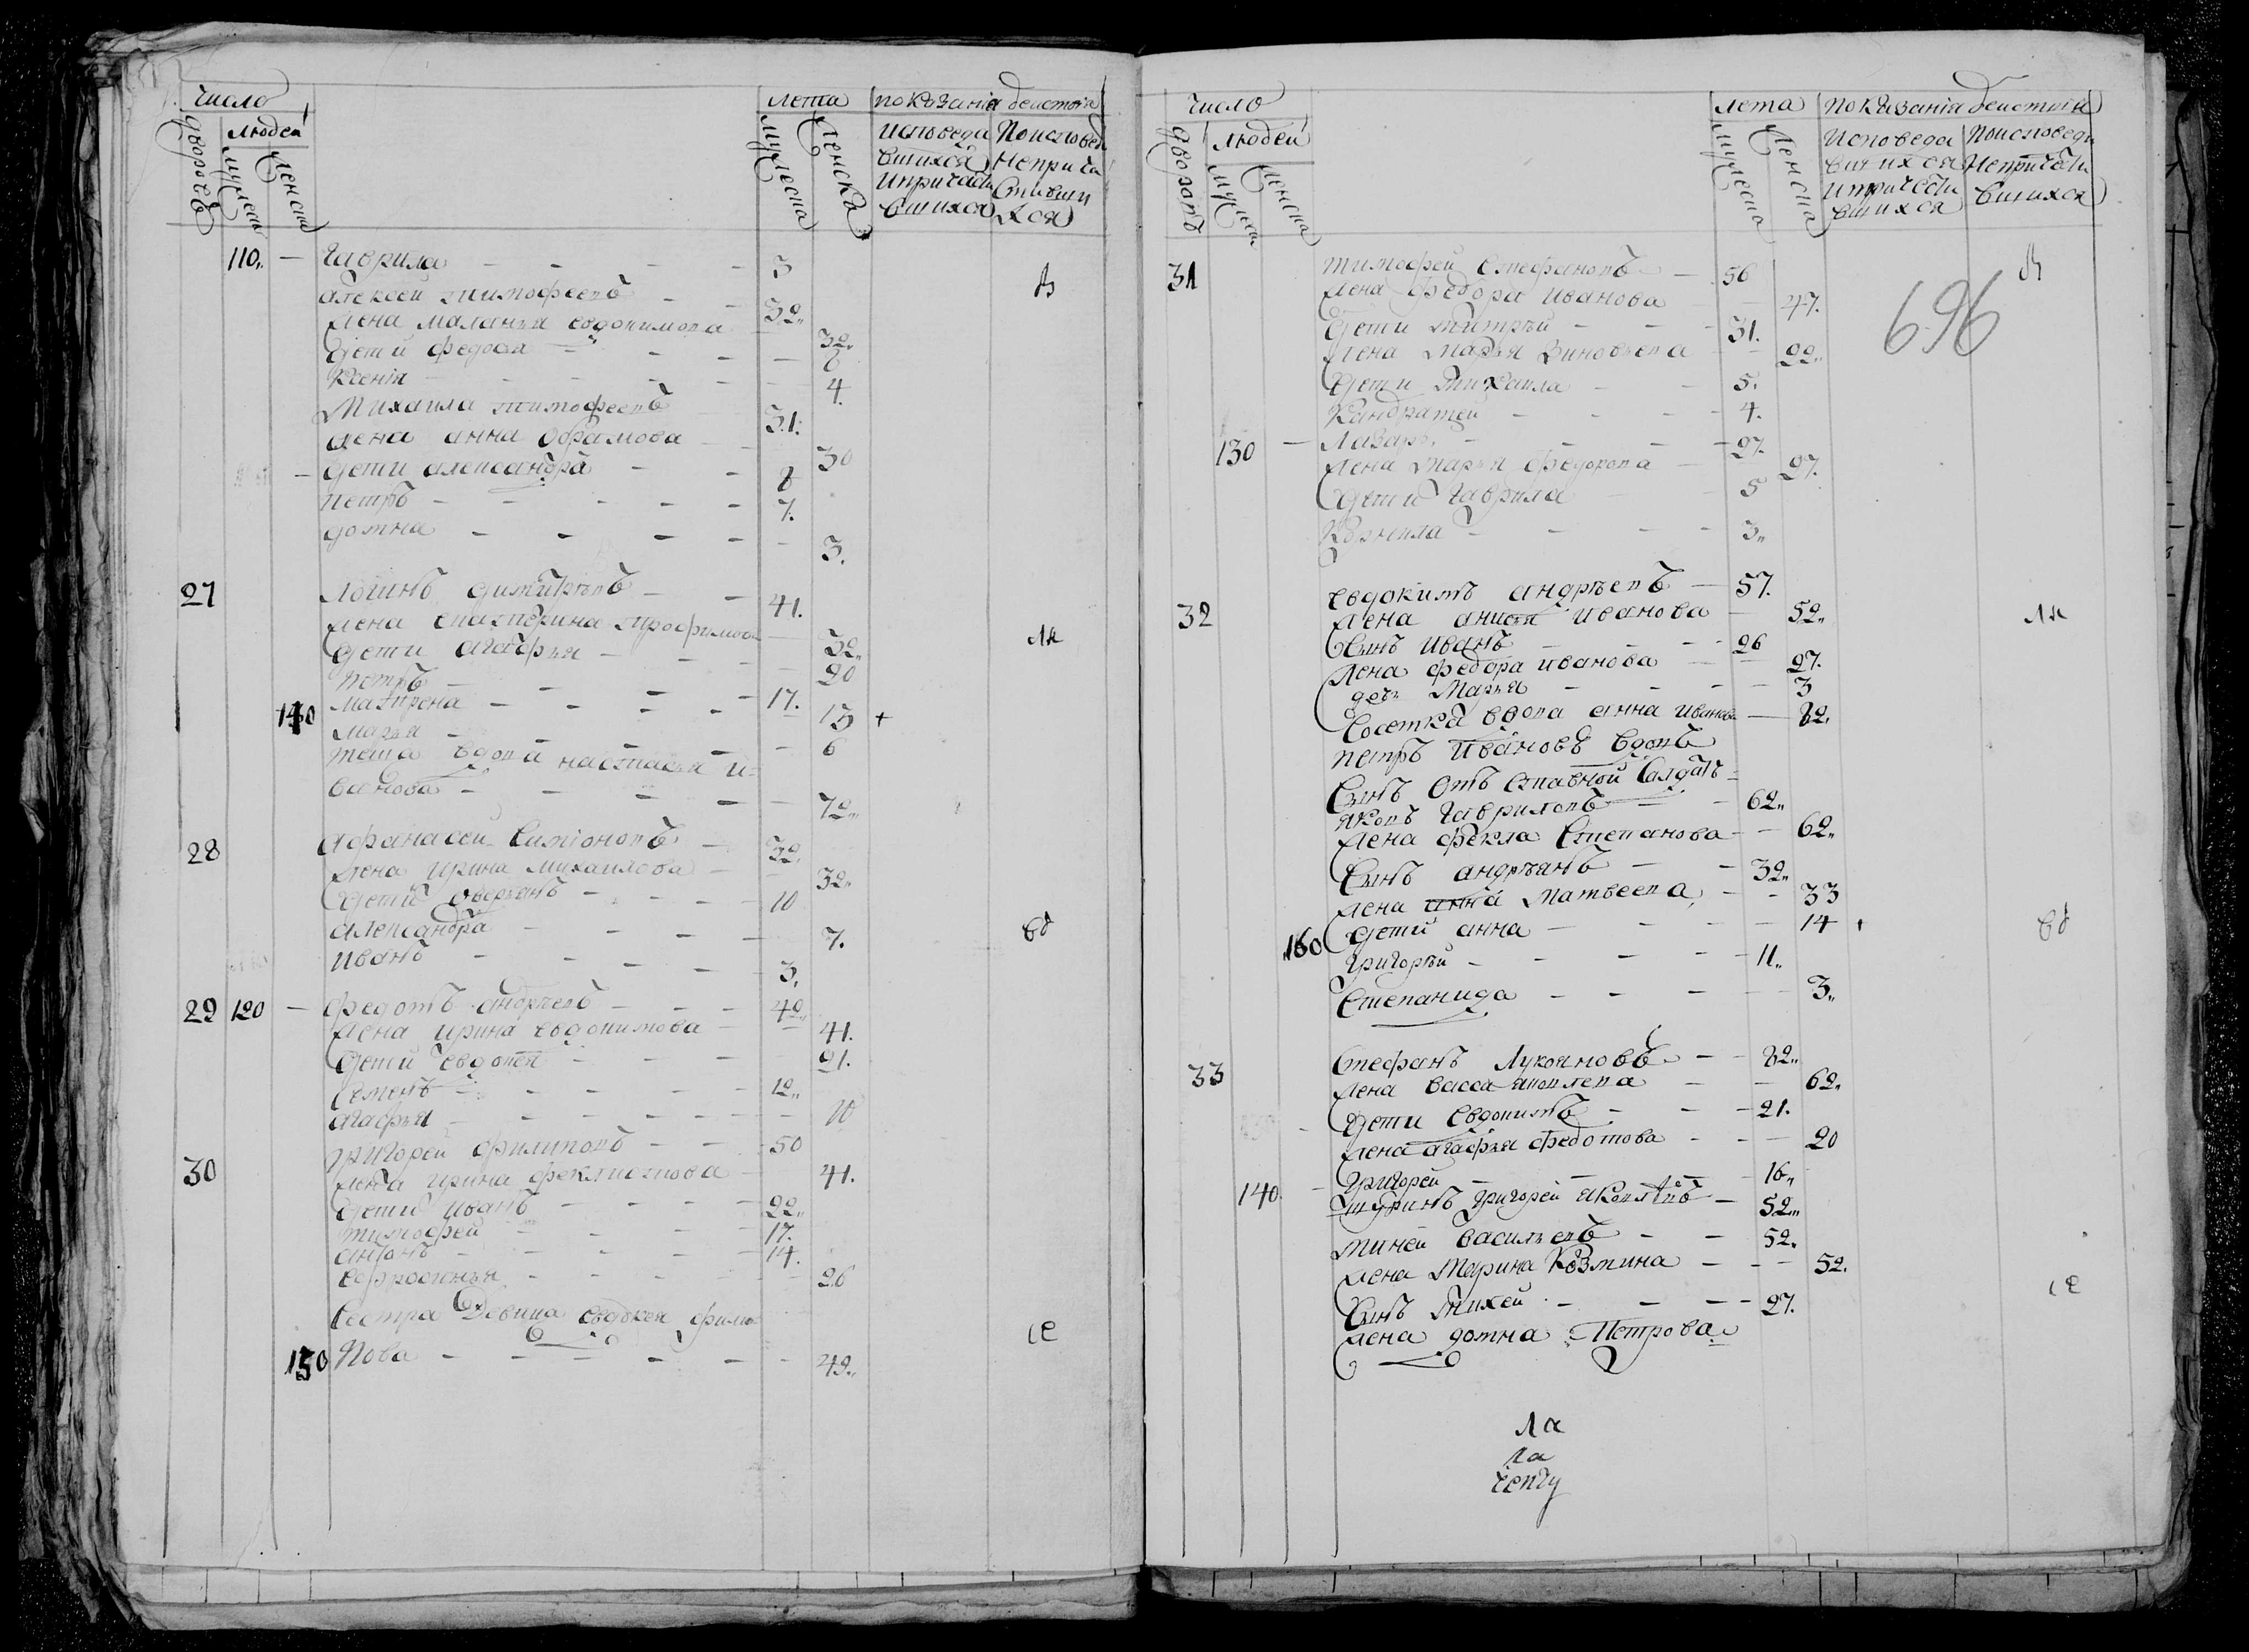 Число
Лета показанія действія
дворовъ людей
мужеска женска
мужеска женска Исповеда Поисповеди
вшихся Неприча
Ипричасти стивши
вшихся хся
110 — Гаврила — — — — 3
Алексей тимофеевъ — — 32
Жена Маланья евдокимова 32
дети федосья — — — — 8
Ксенія — — — — 4
Михаила тимофеевъ 31
жена анна абрамова — 30
— дети александра — — 8
петръ — — — — 7
домна — — — — 3
27 Логинъ димитріевъ — — 41
жена екатерина трофимова 32
дети агафья — — — 20
петръ — — — — 17
140 Матирена — — — — 13 +
Марья — — — — 6
теща вдова настасья и=
ванова — — — — 72
28 Афанасеи Симіоновъ — 32
жена ирина михаилова — 32
дети аверьянъ — — — 10
александра — — — — 7
иванъ — — — — 3
29 120 — федотъ андреевъ — — — 42
жена ирина евдокимова — 41
дети евдокея — — — 21
Семенъ — — — — 12
агафья — — — — 10
30 григореи филиповъ — — 50
жена ирина феклистова — 41
дети иванъ — — — 22
тимофеи — — — — 17
антонъ — — — — 14
ефросинья — — — — 26
Сестра Девица евдокея фили
150 пова — — — — — 42
Число
лета показанія действія
дворовъ людеи
мужеска женска
мужеска женска Исповеда Поисповеди
вшихся Непричасти
ипричасти вшихся
вшихся
31 тимофеи Стефановъ — 56
696
жена федора иванова — 47
дети дмитреи — — 31
жена марья Зиновьева — 22
дети михаила — — 5
Кандратеи — — — 4
130 — Лазарь — — — — 27
жена марья федорова — 27
дети гаврила — — 5
Корнила — — — 3
евдокимъ андреевъ — 57
32 жена анисья иванова — 52
Сынъ иванъ — — — 26
жена федора иванова — 27
дочь Марья — — — 3
Соседка вдова анна иванова — 82
петръ ивановъ вдовъ
Сынъ отъ ставной Салдатъ=
яковъ гавриловъ — — 62
жена фекла Степанова — 62
Сынъ андреянъ — — 32
жена анна Матвеева — — 33
160 дети анна — — — 14 +
григореи — — — — 11
Степанида — — — — 3
33 Стефанъ Лукояновъ — — 82
жена васса яковлева — 62
дети евдокимъ — — 21
жена агафья федотова — — 20
григореи — — — 16
140 — Шуринъ григореи яковлевъ — 52
миней васильевъ — — 52
жена Марина Козмина — — 52
Сынъ михеи — — — 27
жена домна Петрова